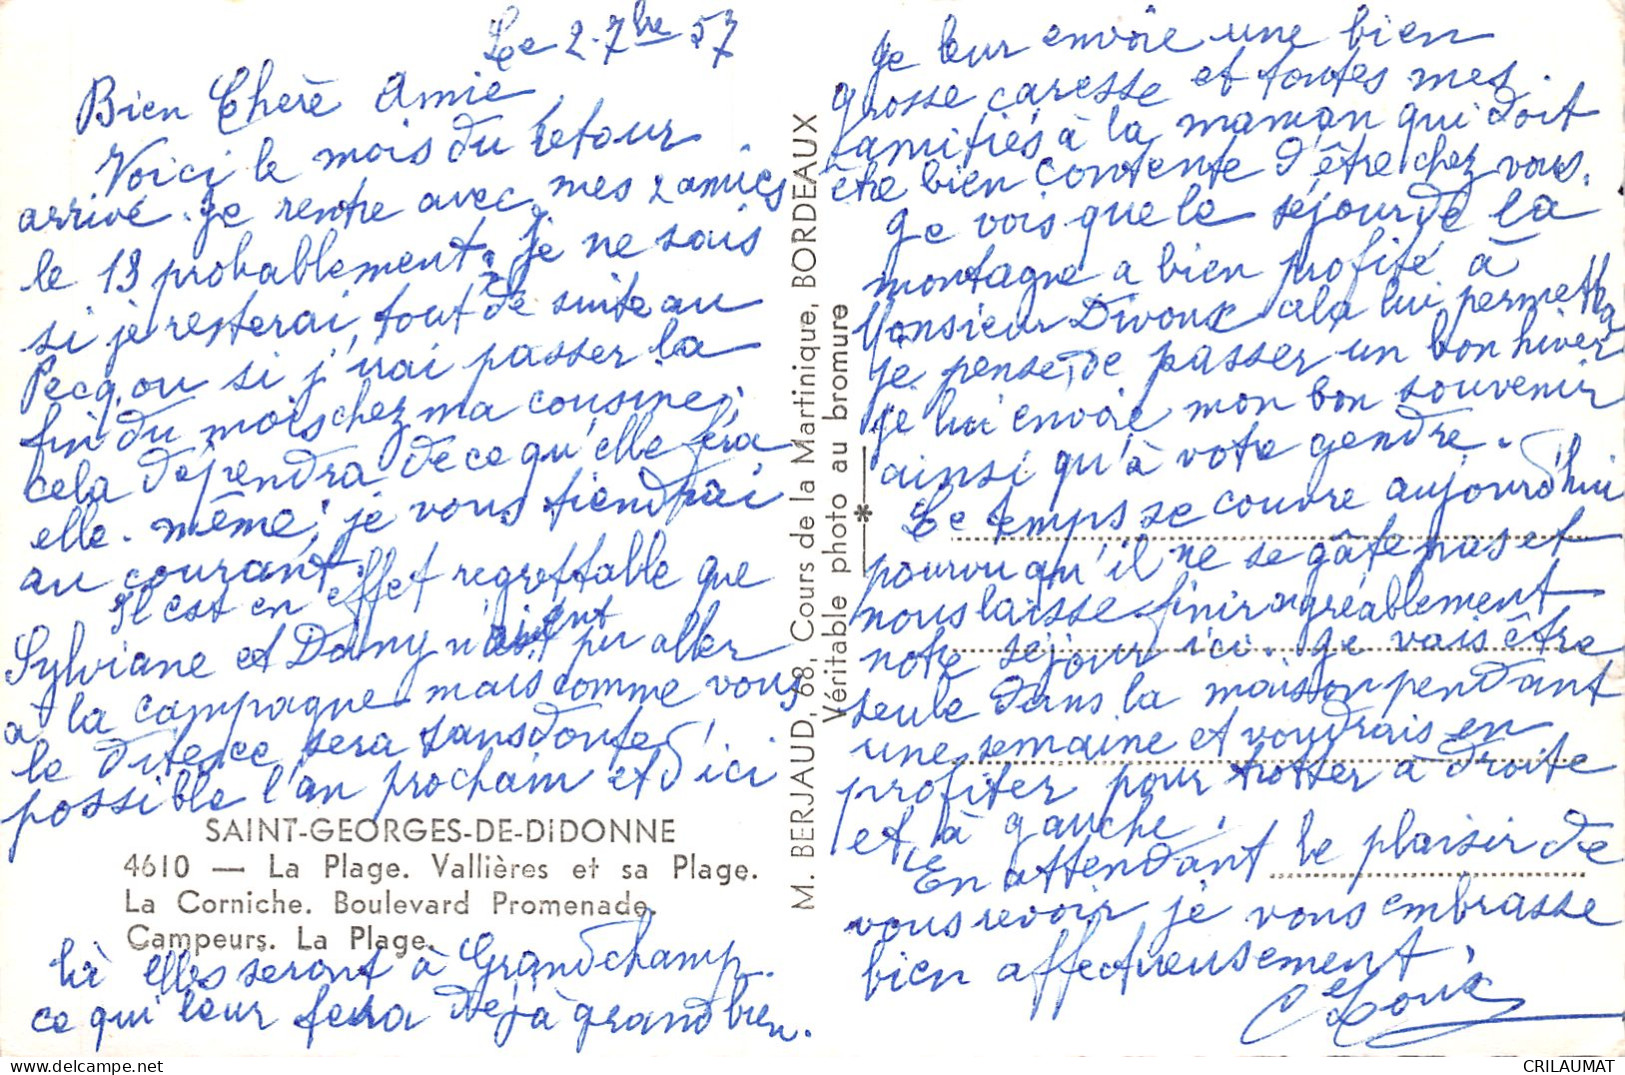 Le 2.7bre 57
Bien Chère Amie
Voici le mois du retour
arrivé. je rentre avec mes 2 amies
le 13 probablement. Je ne sais
si je resterai tout de suite au
Pecq, ou si j'irai passer la
fin du mois chez ma cousine,
cela dépendra de ce qu'elle fera
elle-même; je vous tiendrai
au courant.
Il est en effet regrettable que
Sylviane et Dany n'aient pu aller
à la campagne mais comme vous
le dites, ce sera sans doute
possible l'an prochain et d'ici
SAINT-GEORGES-DE-DIDONNE
4610 — La Plage. Vallières et sa Plage.
La Corniche. Boulevard Promenade.
Campeurs. La Plage.
là elles seront à Grandchamp.
ce qui leur fera déjà grand bien.
M. BERJAUD, 68, Cours de la Martinique, BORDEAUX
Véritable photo au bromure
Je leur envoie une bien
grosse caresse et toutes mes
amitiés à la maman qui doit
être bien contente d'être chez vous.
Je vois que le séjour de la
montagne a bien profité à
Monsieur cela lui permettra
je pense, de passer un bon hiver
je lui envoie mon bon souvenir
ainsi qu'à votre gendre.
Le temps se couvre aujourd'hui
pourvu qu'il ne se gâte pas et
nous laisse finir agréablement
notre séjour ici. Je vais être
seule dans la maison pendant
une semaine et voudrais en
profiter pour trotter à droite
et à gauche.
En attendant le plaisir de
vous revoir je vous embrasse
bien affectueusement.
CRILAUMAT